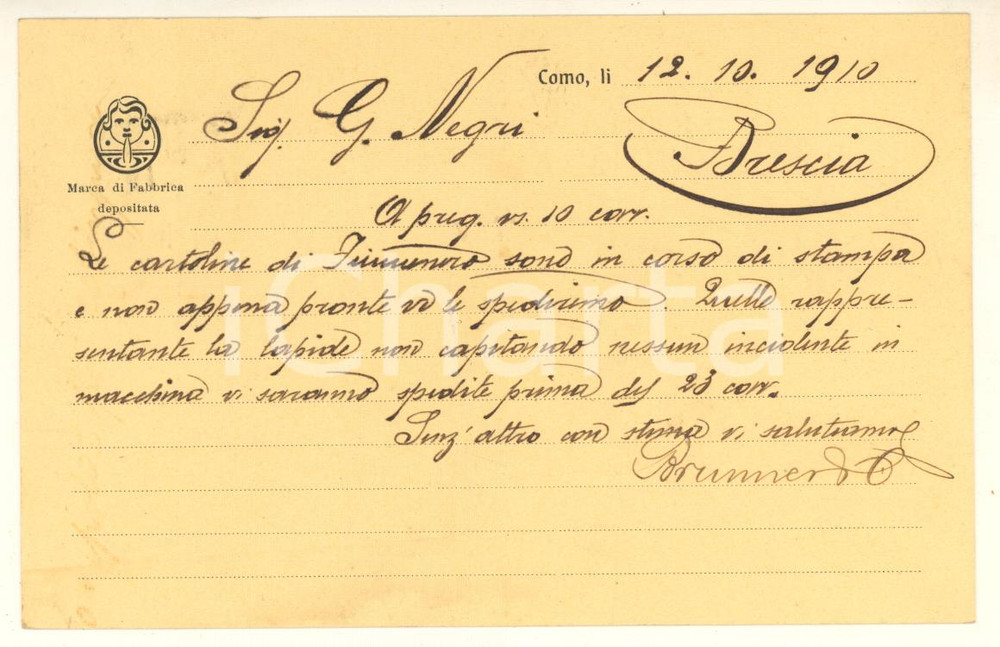 Como, li 12. 10. 1910
Sig. G. Negri
Brescia
Marca di Fabbrica
depositata
A preg. vs. 10 corr.
Le cartoline di Fiumenero sono in corso di stampa
e non appena pronte ve le spediremo. Quelle rappre-
sentante la lapide non capitando nessun incidente in
macchina vi saranno spedite prima del 23 corr.
Senz'altro con stima vi salutiamo
Brunner & C
iCharta